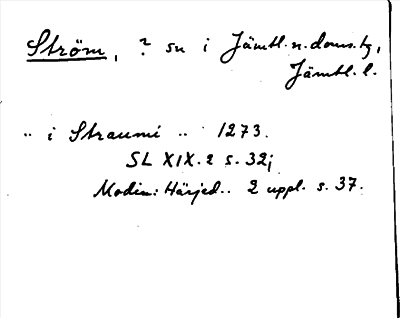 Ström, ? sn i Jämtl. n. doms.,
Jämtl. l.
.. i Straumi .. 1273.
SL XIX. 2 s. 32;
Modin: Härjed.. 2 uppl. s. 37.